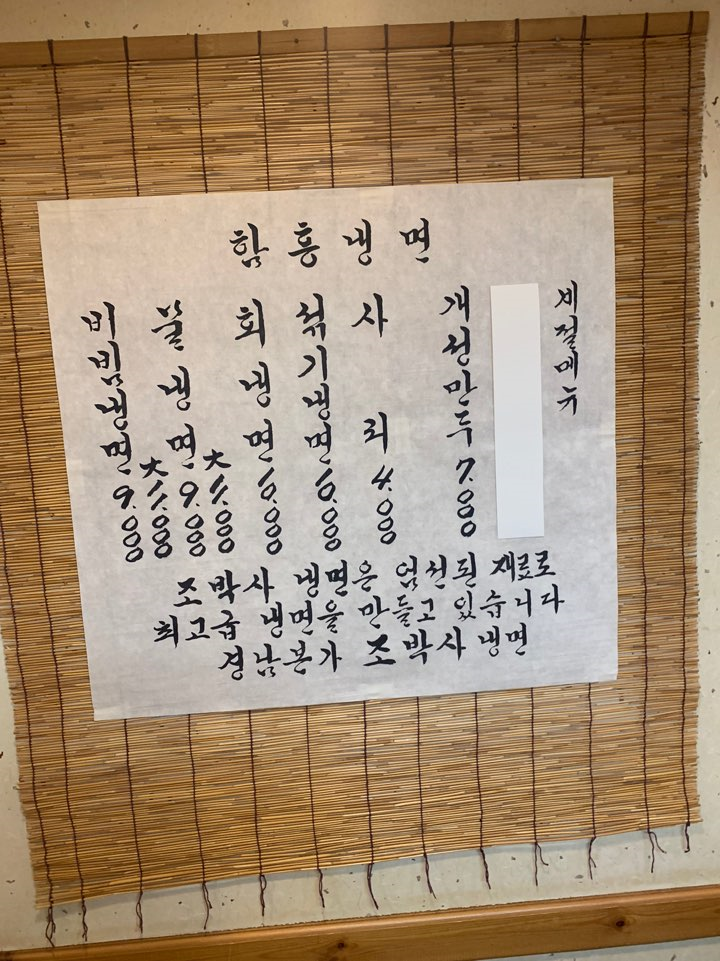 함흥냉면
비빔냉면 9.000
大 1.000
물냉면 9.000
大 1.000
회냉면 6.000
섞기냉면 6.000
사리 4.000
개선만두 7.000
계절메뉴
조박사 냉면은 엄선된 재료로
최고급 냉면을 만들고 있습니다
경남본가 조박사 냉면